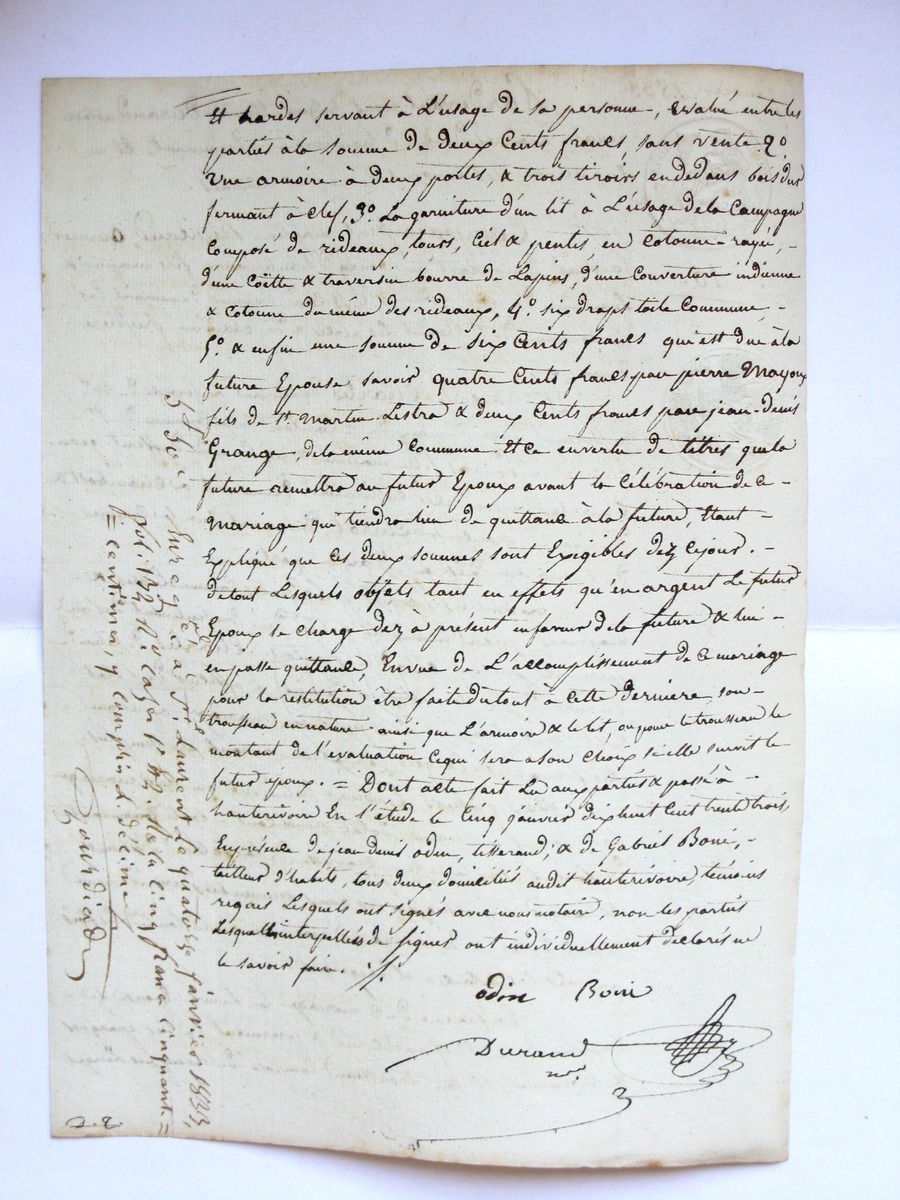 Et hardes servant à L'usage de sa personne, Evalué entre les
parties à la somme de deux Cents francs, sans vente. 2º
une armoire à deux portes, & trois tiroirs en dedans bois dur
fermant à clef, 3º La garniture d'un lit à L'usage de la Campagne
Composé de rideaux, tours, Ciel & pentes, en Cotonne rayée, -
d'une Coëtte & traversin bourre de Lapins, d'une Couverture indienne
& Cotonne du même des rideaux, 4º six draps toile Commune, -
5º & enfin une somme de six Cents francs qui est due à la
future Epouse savoir quatre Cents francs par pierre Mayoux
fils de St. Martin Lestra & deux Cents francs par jean-denis
Grange, de la même Commune. Et ce en vertu de titres que la
future remettra au futur Epoux avant la Célébration de ce -
Mariage qui tiendra lieu de quittance à la future, Etant -
Expliqué que Ces deux sommes sont Exigibles dez ce jour. -
de tout Lesquels objets tant en effets qu'en argent Le futur
Epoux se charge dez à présent en faveur de la future & lui -
en passe quittance, En vue de L'accomplissement de ce mariage
pour la restitution être fait du tout à cette dernière, son -
trousseau en nature ainsi que L'armoire & le lit, ou pour le trousseau le
montant de l'évaluation Ce qui sera a son Choix si elle survit le
futur époux. = Dont acte fait Lu aux parties & passé à -
hauterivoire En l'étude le Cinq janvier dix huit Cent trente trois,
En présence de jean denis odin, tisserand; & de Gabriel Boiré, -
tailleur d'habits, tous deux domiciliés audit hauterivoire, témoins
requis Lesquels ont signés avec nous notaire, non les parties
Lesquelles interpellées de signer ont individuellement déclarés ne
le savoir faire. /.
odin Boiré
Durand
nre.
5f 50c
Enreg. é à St. Laurent Le quatorze janvier 1833,
fol. 137 Rº Case. Reçu cinq francs cinquante =
= centimes, y compris le décime
Gourdiad